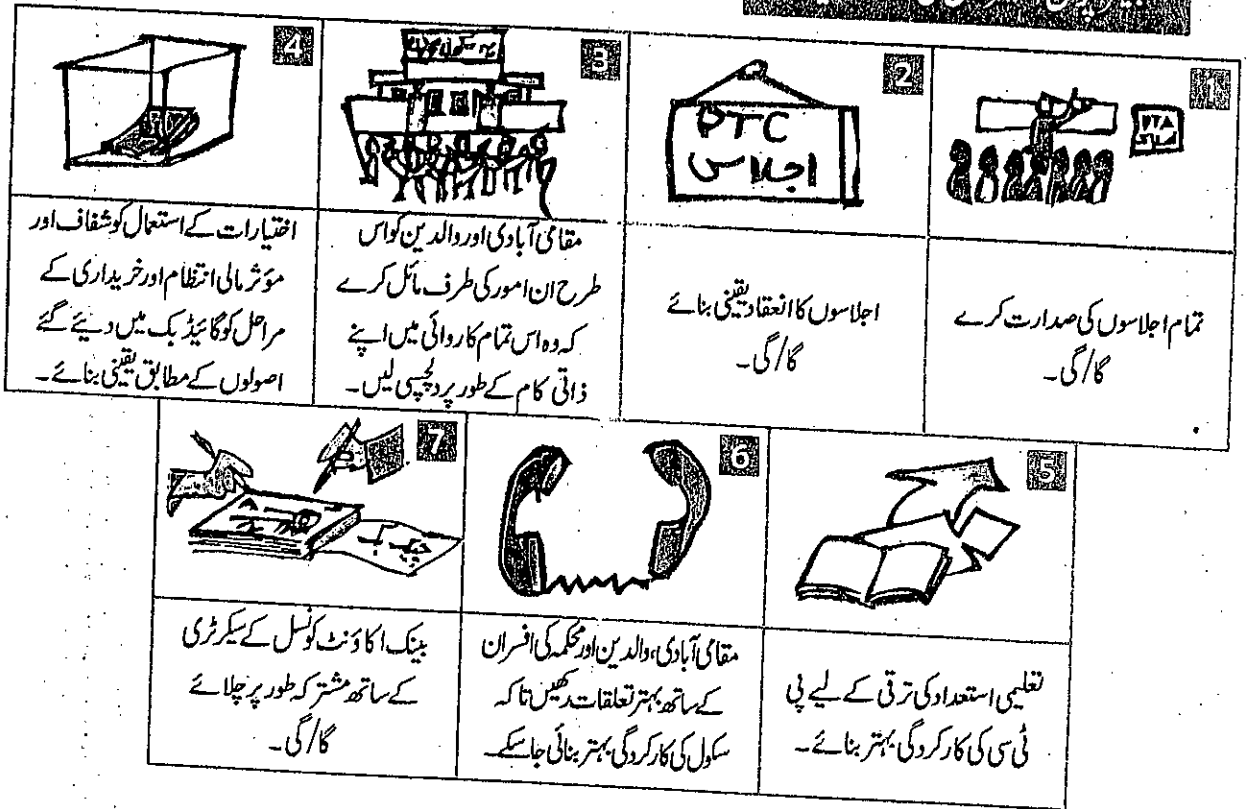 1
2
PTC
اجلاس
3
4
تمام اجلاسوں کی صدارت کرے
گا/گی۔
اجلاسوں کا انعقاد یقینی بنائے
گا/گی۔
مقامی آبادی اور والدین کو اس
طرح ان امور کی طرف مائل کرے
کہ وہ اس تمام کاروائی میں اپنے
ذاتی کام کے طور پر دلچسپی لیں۔
اختیارات کے استعمال کو شفاف اور
مؤثر مالی انتظام اور خریداری کے
مراحل کو گائیڈ بک میں دیئے گئے
اصولوں کے مطابق یقینی بنائے۔
5
6
7
چیک بک
تعلیمی استعداد کی ترقی کے لیے پی
ٹی سی کی کارکردگی بہتر بنائے۔
مقامی آبادی، والدین اور محکمہ کی افسران
کے ساتھ بہتر تعلقات رکھیں تاکہ
سکول کی کارکردگی بہتر بنائی جا سکے۔
بینک اکاؤنٹ کونسل کے سیکرٹری
کے ساتھ مشترکہ طور پر چلائے
گا/گی۔